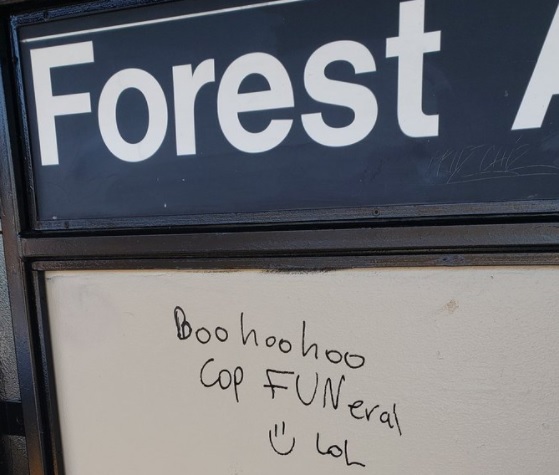 Forest A
Boohoohoo
Cop FUNeral
Lol